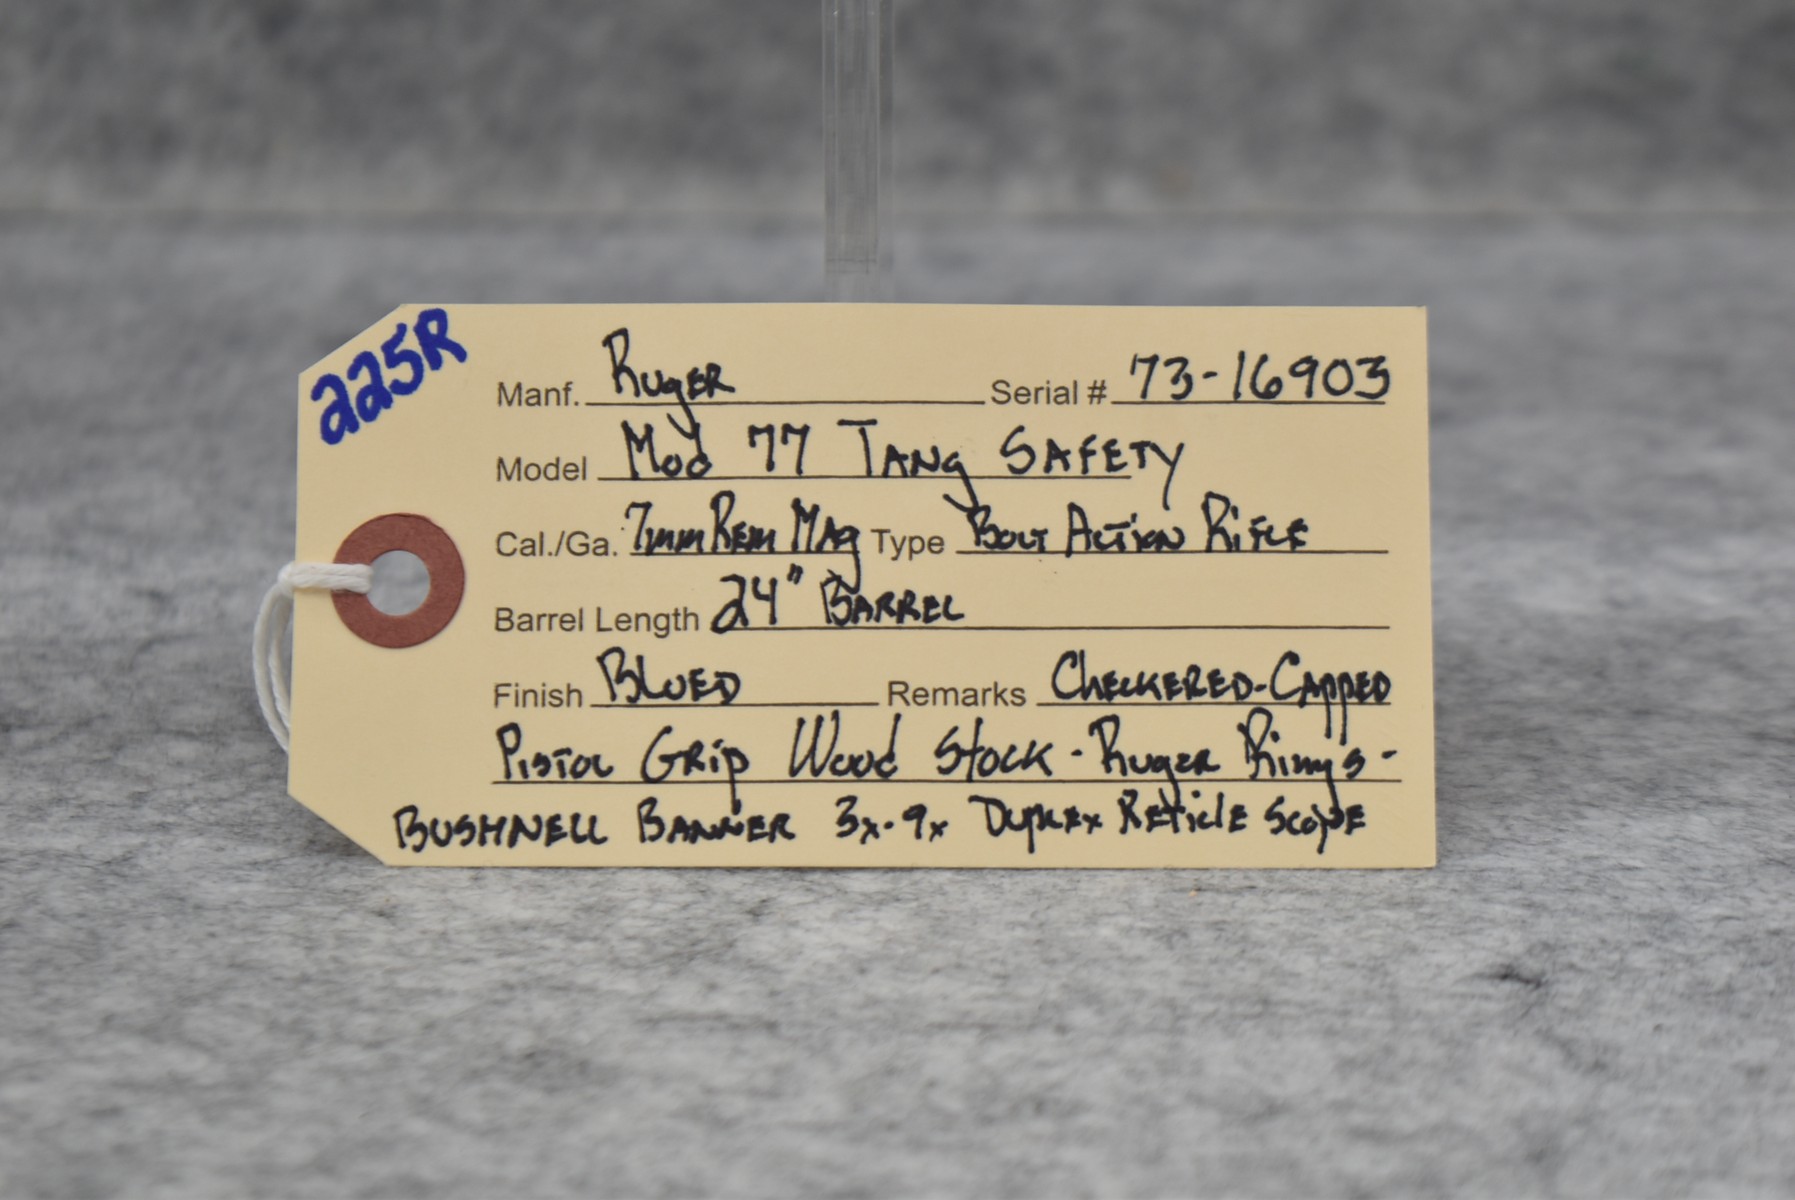 225R
Manf. Ruger Serial # 73-16903
Model Mod 77 Tang Safety
Cal./Ga. 7mm Rem Mag Type Bolt Action Rifle
Barrel Length 24" Barrel
Finish Blued Remarks Checkered-Capped
Pistol Grip Wood Stock - Ruger Rings -
Bushnell Banner 3x-9x Duplex Reticle Scope